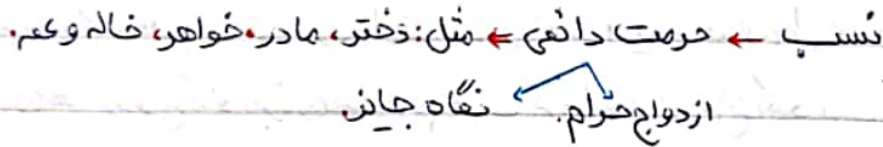 نسب ← حرمت دائمی ← مثل: دختر، مادر، خواهر، خاله و عمه.
ازدواج حرام. نگاه جایز.